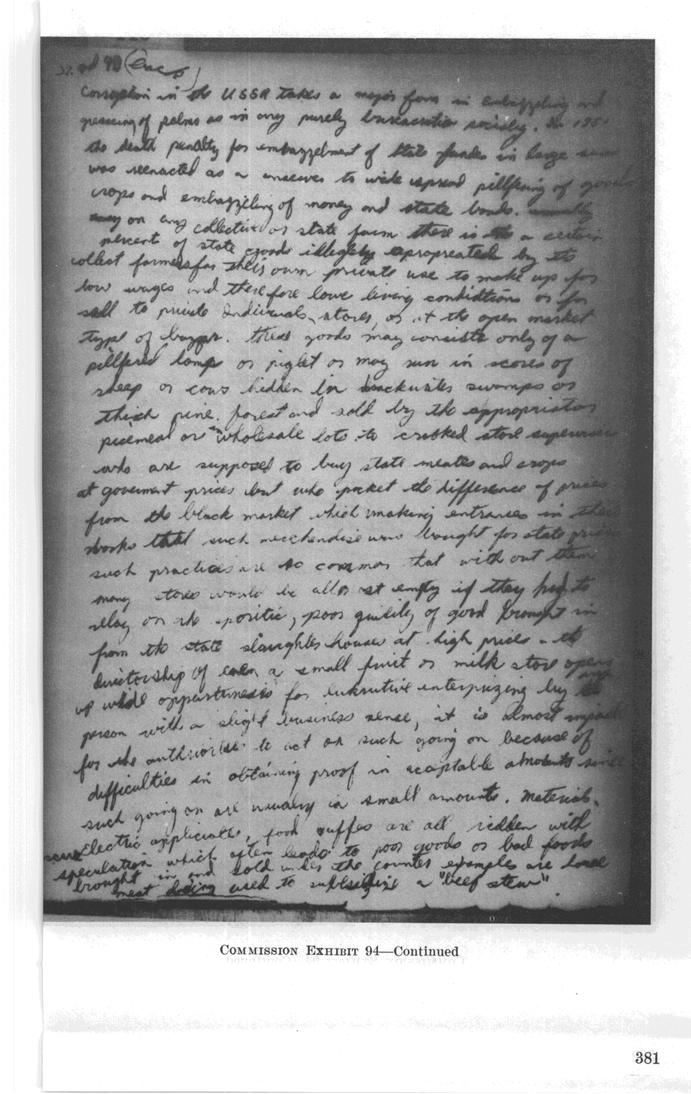 Corruption in the USSR takes a major form in embazzling and
greassing of palms as in any purely burecratic society. In 1961
the death penalty for embazzelment of state funds in large
was reenacted as a to wide spread pillfering of goods
crops and embazzling of money and state bonds.
on any collective or state farm there is a certain
percent of state goods illegbly expropreated by the
collect farmers for their own private use to make up for
low wages and therefore lowe living conditions or for
sell to private indivuals, stores, or at the open market
type of bazzar. these goods may consiste only of a
pillfered lamp or piglet or may run in scores of
sheep or cows hidden in backwates swamps or
thick pine forest and sold by the appropriator
picemeal or wholesale lots to crooked store supervisor
who are supposed to buy state meates and crops
at goverment prices but who pocket the difference of prices
from the black market which making entrances in their
books that such merchendise was bought for state prices
such practices are so common that with out them
many stores would be allmost empty if they had to
relay on the , poor quility of good brought in
from the state slaughterhouses at high prices. the
directorship of even a small fruit or milk store opens
up wild oppurtunesis for lukrutive enterprizing by
person with a slight business sense, it is almost
for the authorites to act on such going on because of
difficulties in obtaining proof in acceptable amounts since
such going on are usually in small amounts. Materials,
electric appliciats, food suffes are all ridden with
speculation which often leads to poor goods or bad foods
brought in and sold under the counter examples are
meat used to a "beef stew".
COMMISSION EXHIBIT 94—Continued
381